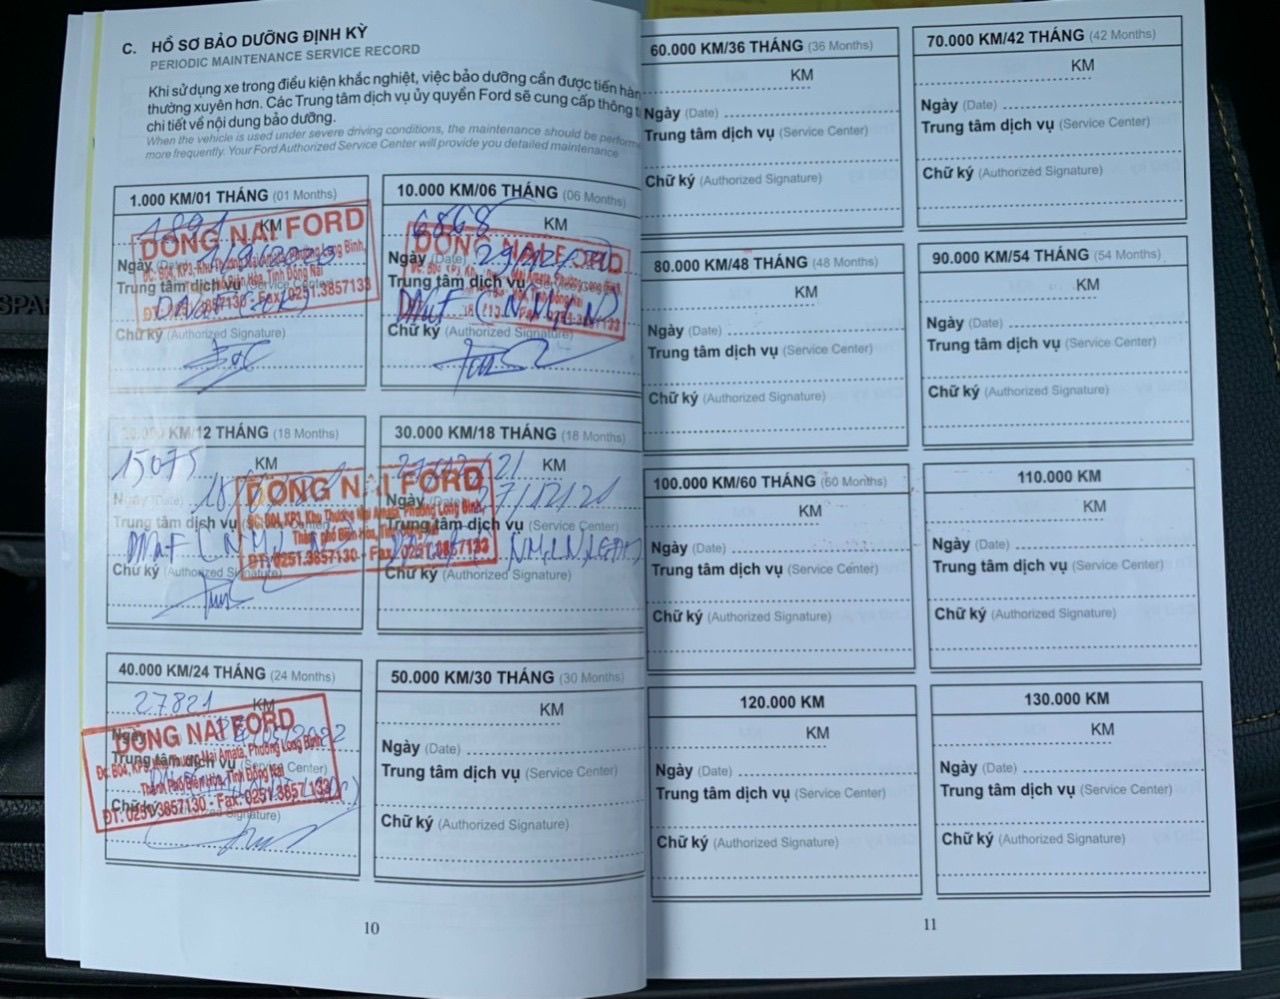 C. HỒ SƠ BẢO DƯỠNG ĐỊNH KỲ
PERIODIC MAINTENANCE SERVICE RECORD
Khi sử dụng xe trong điều kiện khắc nghiệt, việc bảo dưỡng cần được tiến hàn
thường xuyên hơn. Các Trung tâm dịch vụ ủy quyền Ford sẽ cung cấp thông t
chi tiết về nội dung bảo dưỡng.
When the vehicle is used under severe driving conditions, the maintenance should be performe
more frequently. Your Ford Authorized Service Center will provide you detailed maintenance
1.000 KM/01 THÁNG (01 Months)
1891 KM
DONG NAI FORD
Ngày
Trung tâm dịch vụ (Service Center)
ĐT: 0251.3857130 - Fax: 0251.3857133
Chữ ký (Authorized Signature)
10.000 KM/06 THÁNG (06 Months)
6868 KM
DONG NAI FORD
Ngày (Date)
Trung tâm dịch vụ
Chữ ký (Authorized Signature)
KM/12 THÁNG (18 Months)
15075 KM
Ngày (Date)
Trung tâm dịch vụ
Chữ ký (Authorized Signature)
30.000 KM/18 THÁNG (18 Months)
KM
DONG NAI FORD
Ngày (Date) 27/12/21
Đc: B04, KP3, Khu Thương Mại Amata, Phường Long Bình,
Trung tâm dịch vụ (Service Center)
Thành phố Biên Hòa, Tỉnh Đồng Nai
ĐT: 0251.3857130 - Fax: 0251.3857133
Chữ ký (Authorized Signature)
40.000 KM/24 THÁNG (24 Months)
27821 KM
DONG NAI FORD
Ngày
Đc: B04, KP3, Khu Thương Mại Amata, Phường Long Bình
Trung tâm dịch vụ (Service Center)
Thành Phố Biên Hòa, Tỉnh Đồng Nai
ĐT: 0251.3857130 - Fax: 0251.3857133
Chữ ký (Authorized Signature)
50.000 KM/30 THÁNG (30 Months)
KM
Ngày (Date)
Trung tâm dịch vụ (Service Center)
Chữ ký (Authorized Signature)
10
60.000 KM/36 THÁNG (36 Months)
KM
Ngày (Date)
Trung tâm dịch vụ (Service Center)
Chữ ký (Authorized Signature)
70.000 KM/42 THÁNG (42 Months)
KM
Ngày (Date)
Trung tâm dịch vụ (Service Center)
Chữ ký (Authorized Signature)
80.000 KM/48 THÁNG (48 Months)
KM
Ngày (Date)
Trung tâm dịch vụ (Service Center)
Chữ ký (Authorized Signature)
90.000 KM/54 THÁNG (54 Months)
KM
Ngày (Date)
Trung tâm dịch vụ (Service Center)
Chữ ký (Authorized Signature)
100.000 KM/60 THÁNG (60 Months)
KM
Ngày (Date)
Trung tâm dịch vụ (Service Center)
Chữ ký (Authorized Signature)
110.000 KM
KM
Ngày (Date)
Trung tâm dịch vụ (Service Center)
Chữ ký (Authorized Signature)
120.000 KM
KM
Ngày (Date)
Trung tâm dịch vụ (Service Center)
Chữ ký (Authorized Signature)
130.000 KM
KM
Ngày (Date)
Trung tâm dịch vụ (Service Center)
Chữ ký (Authorized Signature)
11